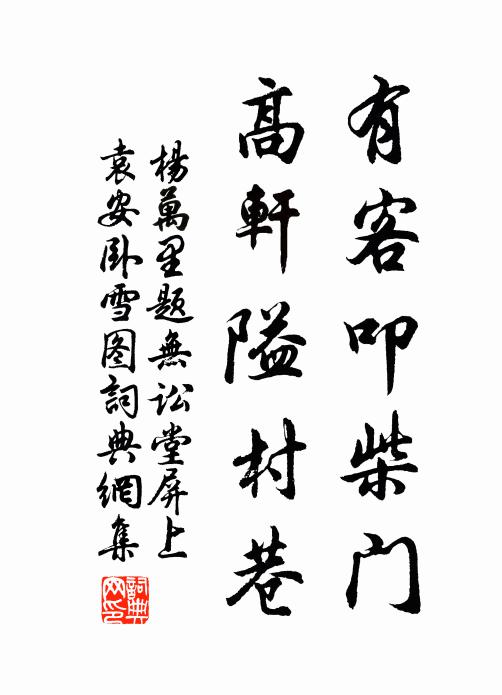 有客叩柴門
高軒隘村巷
楊萬里題無訟堂屏上
袁安卧雪图詞典網集
詞典網印